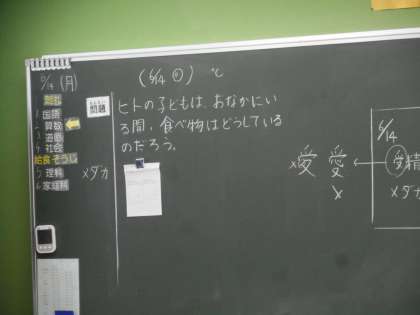 6/14 (月)
朝礼
1 国語
2 算数
3 道徳
4 社会
給食 そうじ
5 理科
6 家庭科
メダカ
(6/14 ㊊) ℃
問題
ヒトの子どもは、おなかにい
る間、食べ物はどうしている
のだろう。
×愛 愛
×
6/14
受精
×メダカ